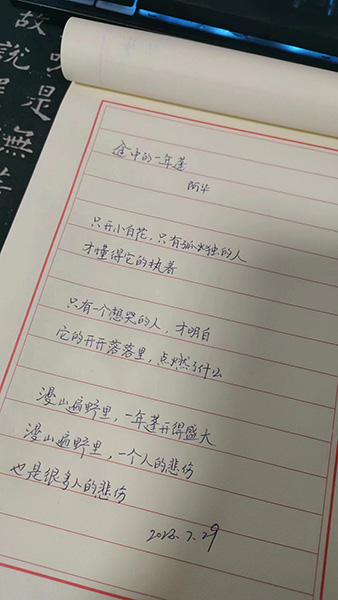 故
說是
無
途中的一年蓬
阿华
只开小白花，只有孤独的人
才懂得它的执着
只有一个想哭的人，才明白
它的开开落落里，点燃了什么
漫山遍野里，一年蓬开得盛大
漫山遍野里，一个人的悲伤
也是很多人的悲伤
2023.7.29